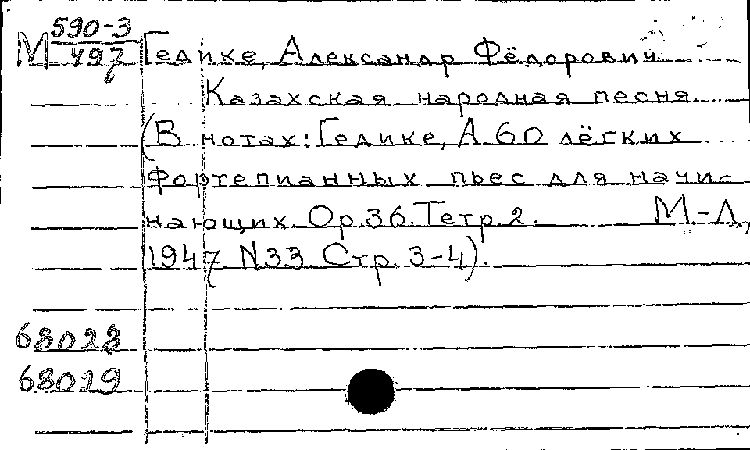 М 590-3
497
Гедике, Александр Фёдорович
Казахская народная песня.
(В нотах: Гедике, А. 60 лёгких
фортепианных пьес для начи-
нающих. Op.36. Тетр. 2. М.-Л.,
1947 N33 Стр. 3-4).
68028
68029